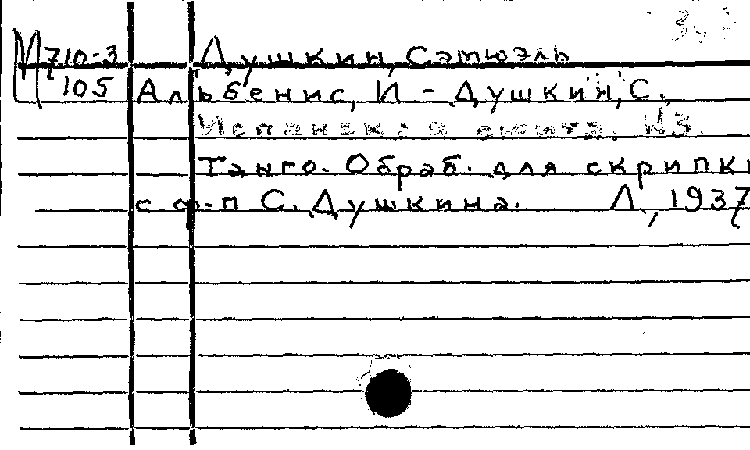 М 710-3 Душкин, Сэмюэль
105 Альбенис, И - Душкин, С.
Испанская сюита. №3.
Танго. Обраб. для скрипки
с ф-п С. Душкина. Л, 1937